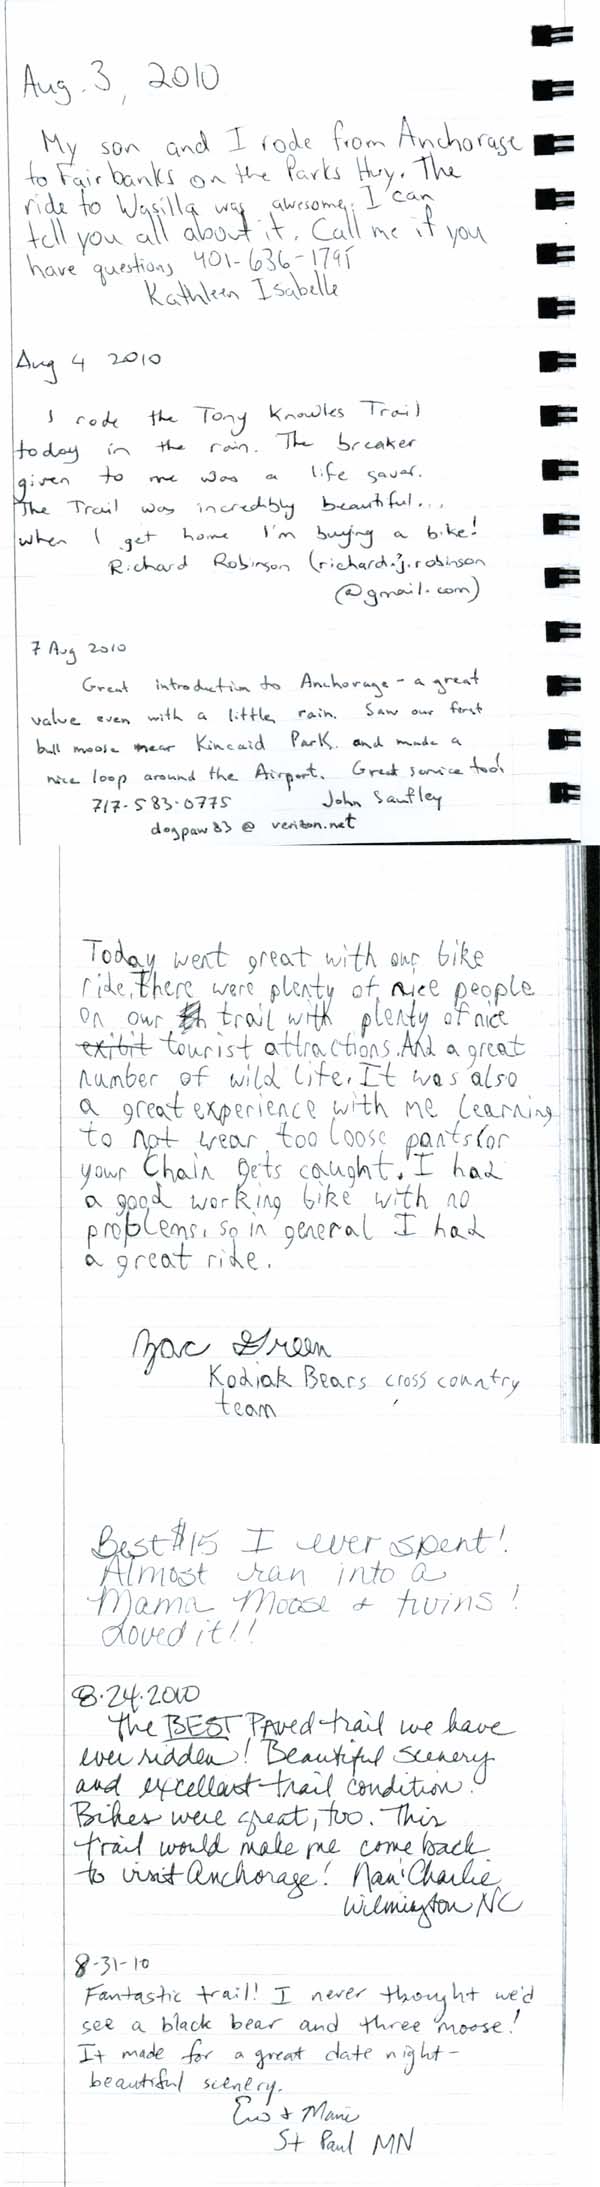 Aug. 3, 2010
My son and I rode from Anchorage
to Fairbanks on the Parks Hwy. The
ride to Wasilla was awesome. I can
tell you all about it. Call me if you
have questions 401-636-1791
Kathleen Isabelle
Aug 4 2010
I rode the Tony Knowles Trail
today in the rain. The breaker
given to me was a life saver.
The Trail was incredibly beautiful...
when I get home I'm buying a bike!
Richard Robinson (richard.j.robinson
@gmail.com)
7 Aug 2010
Great introduction to Anchorage - a great
value even with a little rain. Saw our first
bull moose near Kincaid Park and made a
nice loop around the Airport. Great service too!
717-583-0775 John Saufley
dogpaw83@verizon.net
Today went great with our bike
ride. There were plenty of nice people
on our th trail with plenty of nice
exibit tourist attractions. And a great
number of wild life. It was also
a great experience with me learning
to not wear too loose pants (or
your Chain gets caught. I had
a good working bike with no
problems. so in general I had
a great ride.
Zac Green
Kodiak Bears cross country
team
Best $15 I ever spent!
Almost ran into a
Mama Moose & twins!
Loved it!!
8.24.2010
The BEST PAved trail we have
ever ridden! Beautiful scenery
and excellant trail condition.
Bikes were great, too. This
trail would make me come back
to visit Anchorage! Nan & Charlie
Wilmington NC
8-31-10
Fantastic trail! I never thought we'd
see a black bear and three moose!
It made for a great date night-
beautiful scenery.
& Marie
St Paul MN